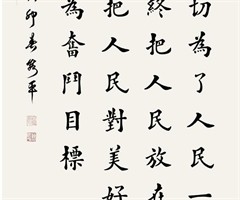 切為了人民一
終把人民放在
把人民對美好
為奮鬥目標
卯春
平